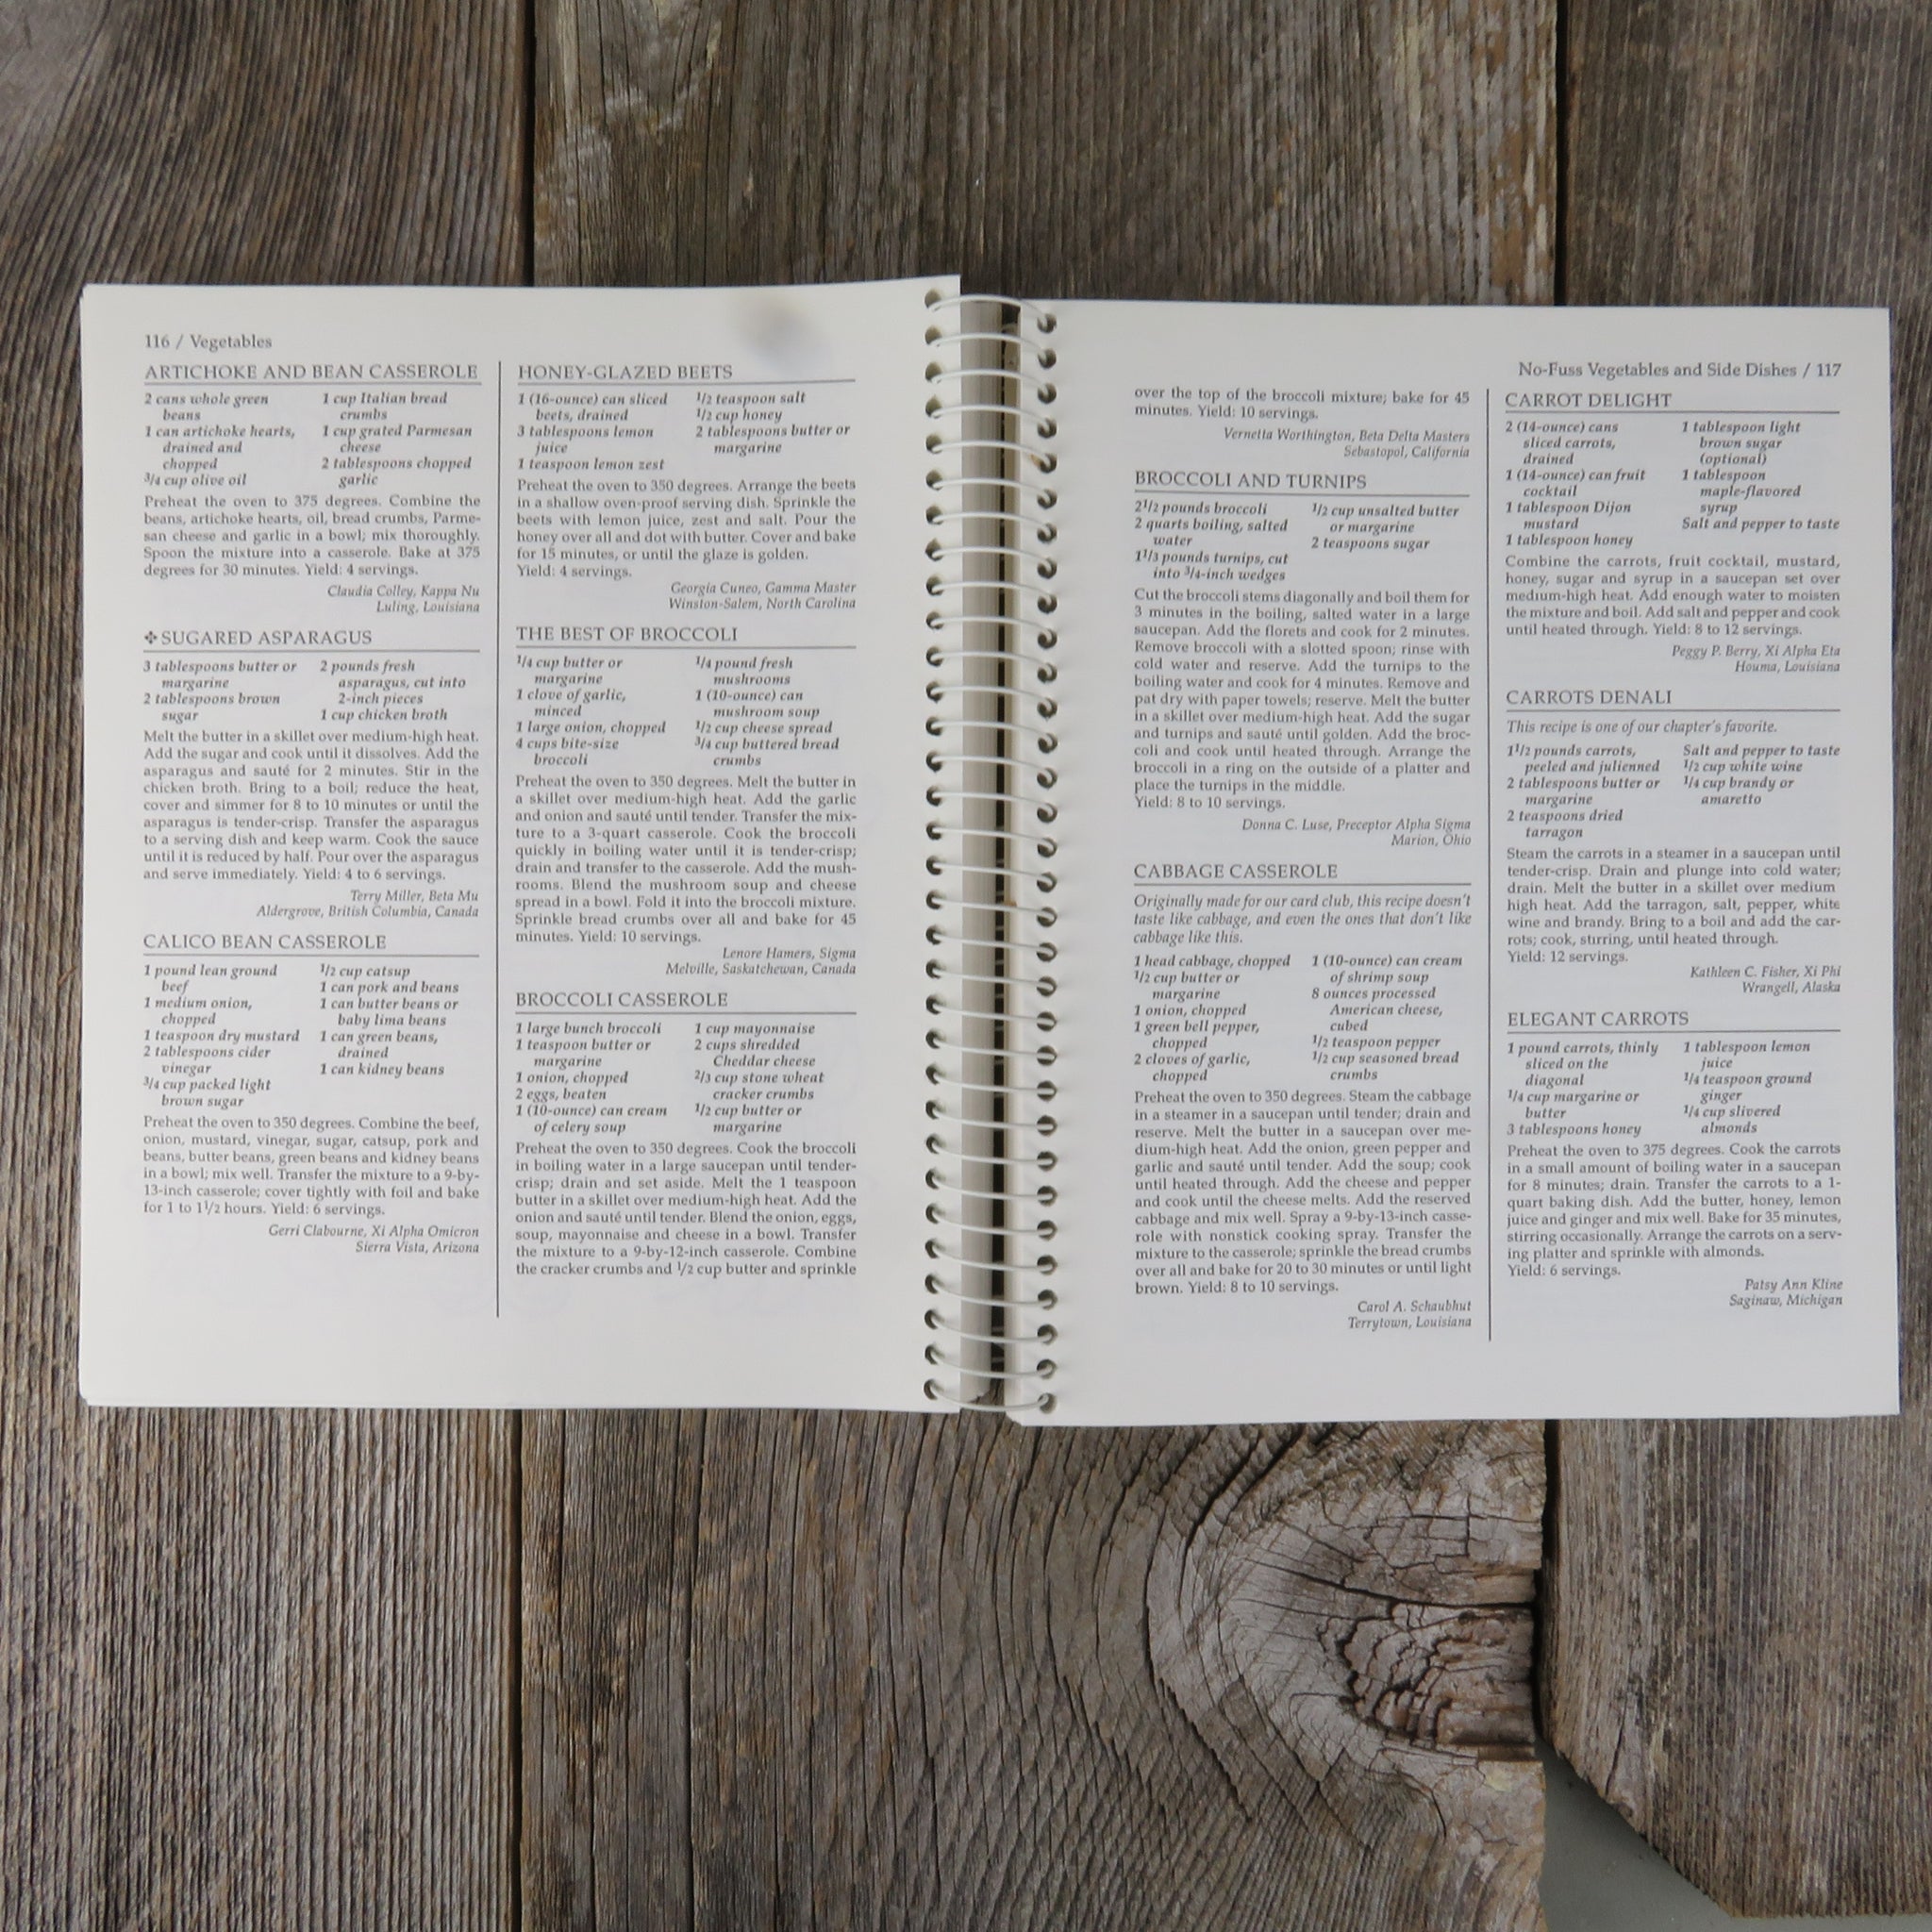 116 / Vegetables
ARTICHOKE AND BEAN CASSEROLE
2 cans whole green
beans
1 can artichoke hearts,
drained and
chopped
3/4 cup olive oil
1 cup Italian bread
crumbs
1 cup grated Parmesan
cheese
2 tablespoons chopped
garlic
Preheat the oven to 375 degrees. Combine the
beans, artichoke hearts, oil, bread crumbs, Parme-
san cheese and garlic in a bowl; mix thoroughly.
Spoon the mixture into a casserole. Bake at 375
degrees for 30 minutes. Yield: 4 servings.
Claudia Colley, Kappa Nu
Luling, Louisiana
❖ SUGARED ASPARAGUS
3 tablespoons butter or
margarine
2 tablespoons brown
sugar
2 pounds fresh
asparagus, cut into
2-inch pieces
1 cup chicken broth
Melt the butter in a skillet over medium-high heat.
Add the sugar and cook until it dissolves. Add the
asparagus and sauté for 2 minutes. Stir in the
chicken broth. Bring to a boil; reduce the heat,
cover and simmer for 8 to 10 minutes or until the
asparagus is tender-crisp. Transfer the asparagus
to a serving dish and keep warm. Cook the sauce
until it is reduced by half. Pour over the asparagus
and serve immediately. Yield: 4 to 6 servings.
Terry Miller, Beta Mu
Aldergrove, British Columbia, Canada
CALICO BEAN CASSEROLE
1 pound lean ground
beef
1 medium onion,
chopped
1 teaspoon dry mustard
2 tablespoons cider
vinegar
3/4 cup packed light
brown sugar
1/2 cup catsup
1 can pork and beans
1 can butter beans or
baby lima beans
1 can green beans,
drained
1 can kidney beans
Preheat the oven to 350 degrees. Combine the beef,
onion, mustard, vinegar, sugar, catsup, pork and
beans, butter beans, green beans and kidney beans
in a bowl; mix well. Transfer the mixture to a 9-by-
13-inch casserole; cover tightly with foil and bake
for 1 to 1 1/2 hours. Yield: 6 servings.
Gerri Clabourne, Xi Alpha Omicron
Sierra Vista, Arizona
HONEY-GLAZED BEETS
1 (16-ounce) can sliced
beets, drained
3 tablespoons lemon
juice
1 teaspoon lemon zest
1/2 teaspoon salt
1/2 cup honey
2 tablespoons butter or
margarine
Preheat the oven to 350 degrees. Arrange the beets
in a shallow oven-proof serving dish. Sprinkle the
beets with lemon juice, zest and salt. Pour the
honey over all and dot with butter. Cover and bake
for 15 minutes, or until the glaze is golden.
Yield: 4 servings.
Georgia Cuneo, Gamma Master
Winston-Salem, North Carolina
THE BEST OF BROCCOLI
1/4 cup butter or
margarine
1 clove of garlic,
minced
1 large onion, chopped
4 cups bite-size
broccoli
1/4 pound fresh
mushrooms
1 (10-ounce) can
mushroom soup
1/2 cup cheese spread
3/4 cup buttered bread
crumbs
Preheat the oven to 350 degrees. Melt the butter in
a skillet over medium-high heat. Add the garlic
and onion and sauté until tender. Transfer the mix-
ture to a 3-quart casserole. Cook the broccoli
quickly in boiling water until it is tender-crisp;
drain and transfer to the casserole. Add the mush-
rooms. Blend the mushroom soup and cheese
spread in a bowl. Fold it into the broccoli mixture.
Sprinkle bread crumbs over all and bake for 45
minutes. Yield: 10 servings.
Lenore Hamers, Sigma
Melville, Saskatchewan, Canada
BROCCOLI CASSEROLE
1 large bunch broccoli
1 teaspoon butter or
margarine
1 onion, chopped
2 eggs, beaten
1 (10-ounce) can cream
of celery soup
1 cup mayonnaise
2 cups shredded
Cheddar cheese
2/3 cup stone wheat
cracker crumbs
1/2 cup butter or
margarine
Preheat the oven to 350 degrees. Cook the broccoli
in boiling water in a large saucepan until tender-
crisp; drain and set aside. Melt the 1 teaspoon
butter in a skillet over medium-high heat. Add the
onion and sauté until tender. Blend the onion, eggs,
soup, mayonnaise and cheese in a bowl. Transfer
the mixture to a 9-by-12-inch casserole. Combine
the cracker crumbs and 1/2 cup butter and sprinkle
No-Fuss Vegetables and Side Dishes / 117
over the top of the broccoli mixture; bake for 45
minutes. Yield: 10 servings.
Vernetta Worthington, Beta Delta Masters
Sebastopol, California
BROCCOLI AND TURNIPS
2 1/2 pounds broccoli
2 quarts boiling, salted
water
1 1/3 pounds turnips, cut
into 3/4-inch wedges
1/2 cup unsalted butter
or margarine
2 teaspoons sugar
Cut the broccoli stems diagonally and boil them for
3 minutes in the boiling, salted water in a large
saucepan. Add the florets and cook for 2 minutes.
Remove broccoli with a slotted spoon; rinse with
cold water and reserve. Add the turnips to the
boiling water and cook for 4 minutes. Remove and
pat dry with paper towels; reserve. Melt the butter
in a skillet over medium-high heat. Add the sugar
and turnips and sauté until golden. Add the broc-
coli and cook until heated through. Arrange the
broccoli in a ring on the outside of a platter and
place the turnips in the middle.
Yield: 8 to 10 servings.
Donna C. Luse, Preceptor Alpha Sigma
Marion, Ohio
CABBAGE CASSEROLE
Originally made for our card club, this recipe doesn't
taste like cabbage, and even the ones that don't like
cabbage like this.
1 head cabbage, chopped
1/2 cup butter or
margarine
1 onion, chopped
1 green bell pepper,
chopped
2 cloves of garlic,
chopped
1 (10-ounce) can cream
of shrimp soup
8 ounces processed
American cheese,
cubed
1/2 teaspoon pepper
1/2 cup seasoned bread
crumbs
Preheat the oven to 350 degrees. Steam the cabbage
in a steamer in a saucepan until tender; drain and
reserve. Melt the butter in a saucepan over me-
dium-high heat. Add the onion, green pepper and
garlic and sauté until tender. Add the soup; cook
until heated through. Add the cheese and pepper
and cook until the cheese melts. Add the reserved
cabbage and mix well. Spray a 9-by-13-inch casse-
role with nonstick cooking spray. Transfer the
mixture to the casserole; sprinkle the bread crumbs
over all and bake for 20 to 30 minutes or until light
brown. Yield: 8 to 10 servings.
Carol A. Schaubhut
Terrytown, Louisiana
CARROT DELIGHT
2 (14-ounce) cans
sliced carrots,
drained
1 (14-ounce) can fruit
cocktail
1 tablespoon Dijon
mustard
1 tablespoon honey
1 tablespoon light
brown sugar
(optional)
1 tablespoon
maple-flavored
syrup
Salt and pepper to taste
Combine the carrots, fruit cocktail, mustard,
honey, sugar and syrup in a saucepan set over
medium-high heat. Add enough water to moisten
the mixture and boil. Add salt and pepper and cook
until heated through. Yield: 8 to 12 servings.
Peggy P. Berry, Xi Alpha Eta
Houma, Louisiana
CARROTS DENALI
This recipe is one of our chapter's favorite.
1 1/2 pounds carrots,
peeled and julienned
2 tablespoons butter or
margarine
2 teaspoons dried
tarragon
Salt and pepper to taste
1/2 cup white wine
1/4 cup brandy or
amaretto
Steam the carrots in a steamer in a saucepan until
tender-crisp. Drain and plunge into cold water;
drain. Melt the butter in a skillet over medium
high heat. Add the tarragon, salt, pepper, white
wine and brandy. Bring to a boil and add the car-
rots; cook, stirring, until heated through.
Yield: 12 servings.
Kathleen C. Fisher, Xi Phi
Wrangell, Alaska
ELEGANT CARROTS
1 pound carrots, thinly
sliced on the
diagonal
1/4 cup margarine or
butter
3 tablespoons honey
1 tablespoon lemon
juice
1/4 teaspoon ground
ginger
1/4 cup slivered
almonds
Preheat the oven to 375 degrees. Cook the carrots
in a small amount of boiling water in a saucepan
for 8 minutes; drain. Transfer the carrots to a 1-
quart baking dish. Add the butter, honey, lemon
juice and ginger and mix well. Bake for 35 minutes,
stirring occasionally. Arrange the carrots on a serv-
ing platter and sprinkle with almonds.
Yield: 6 servings.
Patsy Ann Kline
Saginaw, Michigan